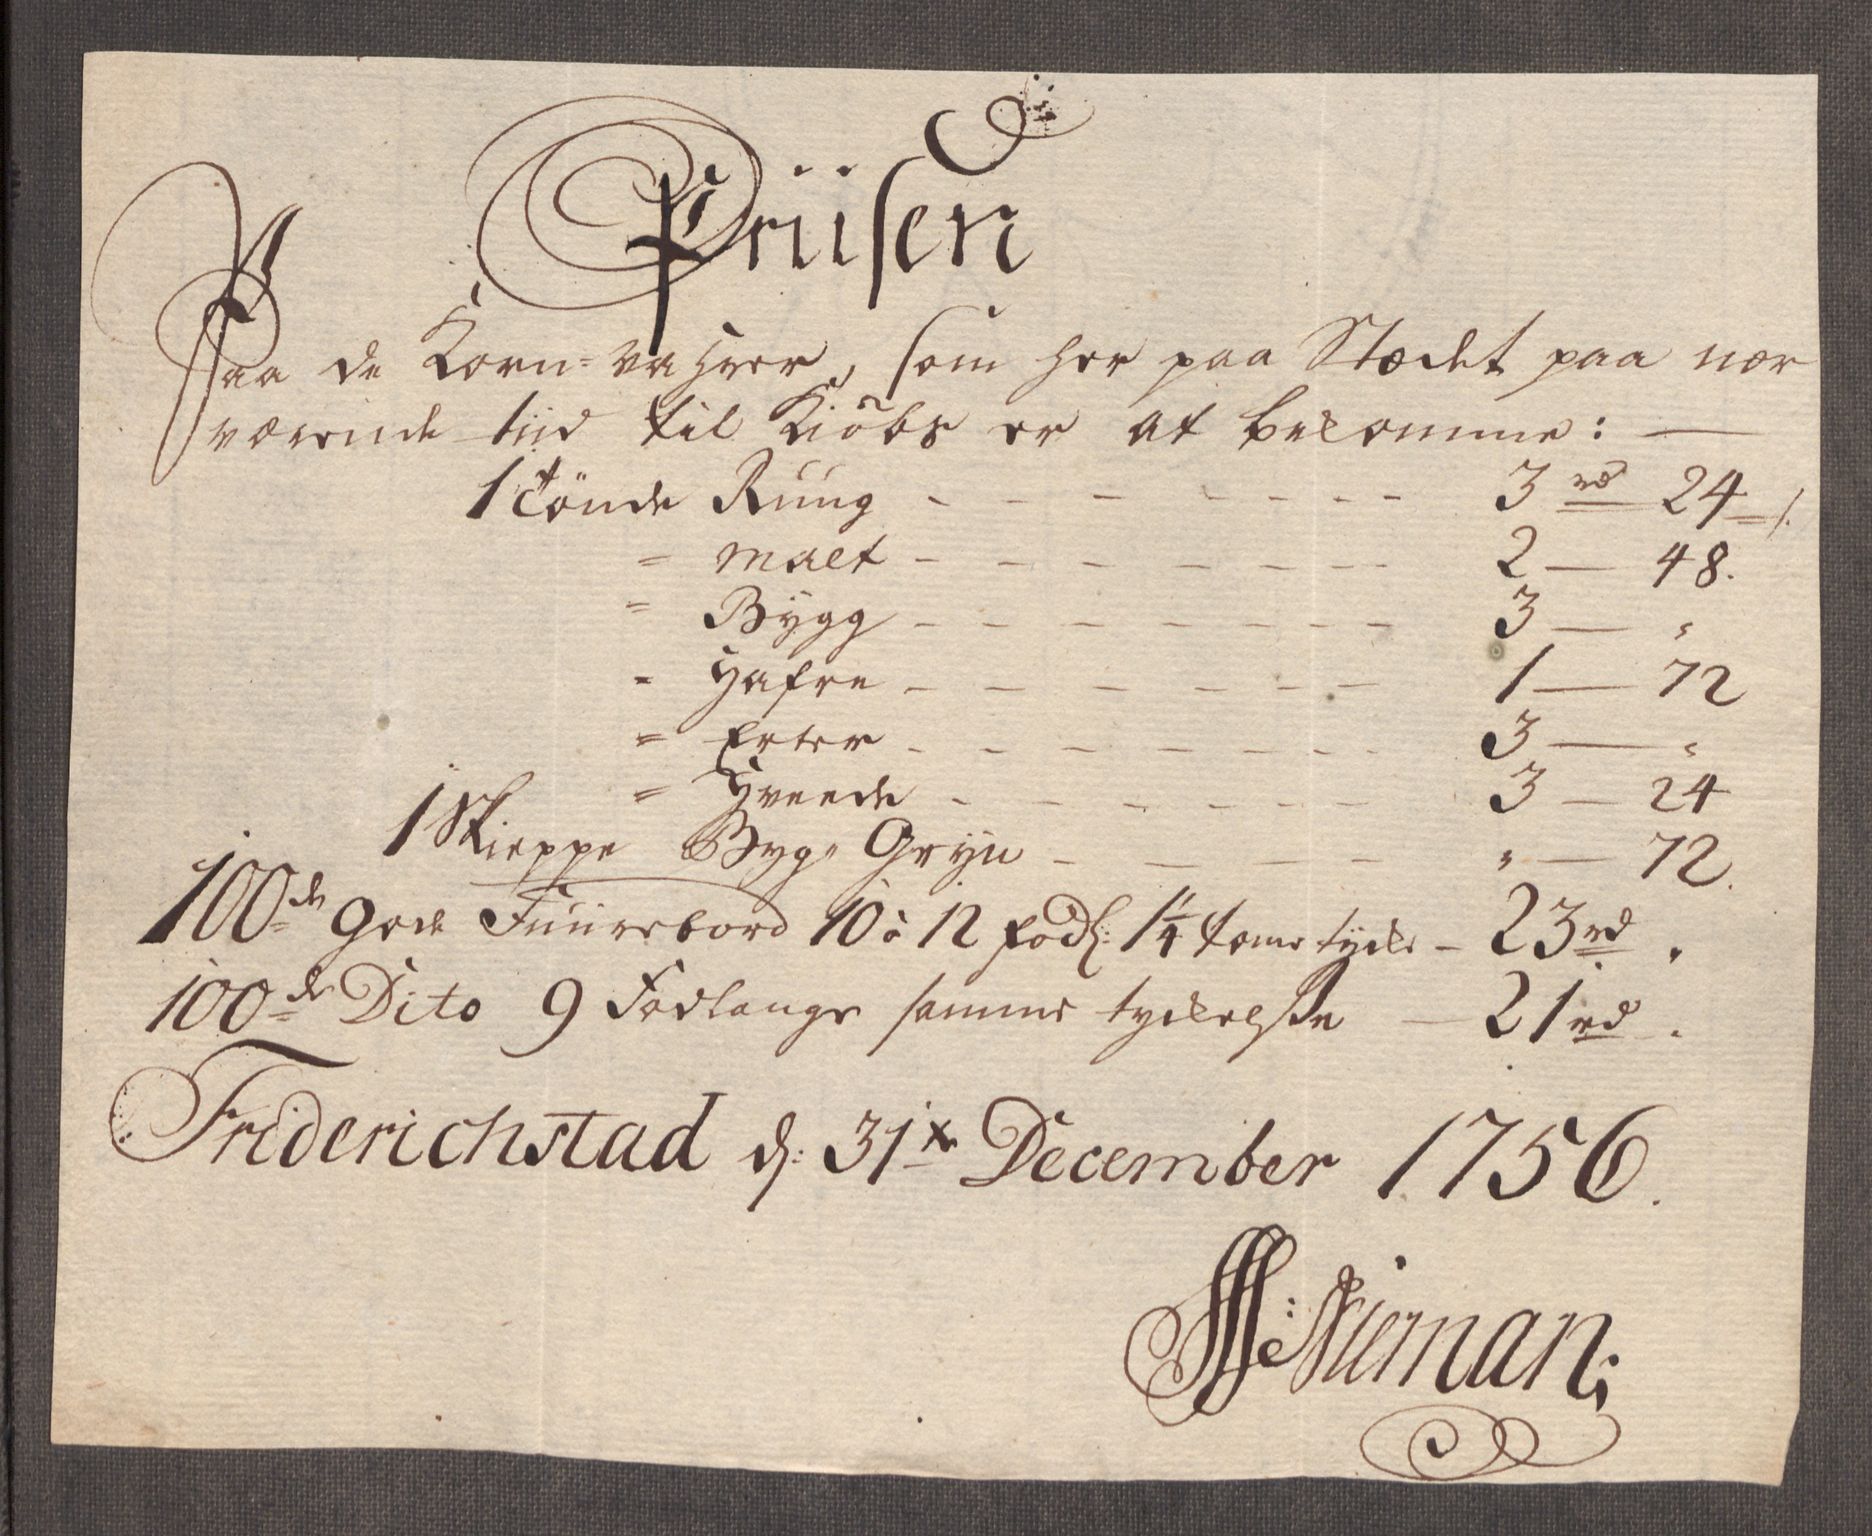 Priisen
Paa de Korn-vahrer, som her paa Stædet paa nær
værende tiid til Kiöbs er at bekomme: —
1 tönde Rung - - - - - - - 3 rd 24 s.
= malt - - - - - - - 2 — 48.
= Bygg - - - - - - - 3 — "
= Hafre - - - - - - - 1 — 72
= Erter - - - - - - - 3 — "
= Hveede - - - - - - - 3 — 24
1 Skieppe Byg Gryn - - - - " — 72.
100de gode Fuurebord 10 à 12 fod l: 1¼ tome tycke - 23 rd.
100de Dito 9 Fodlange samme tyckelse — 21 rd.
Friderichstad d: 31te December 1756.
Nieman